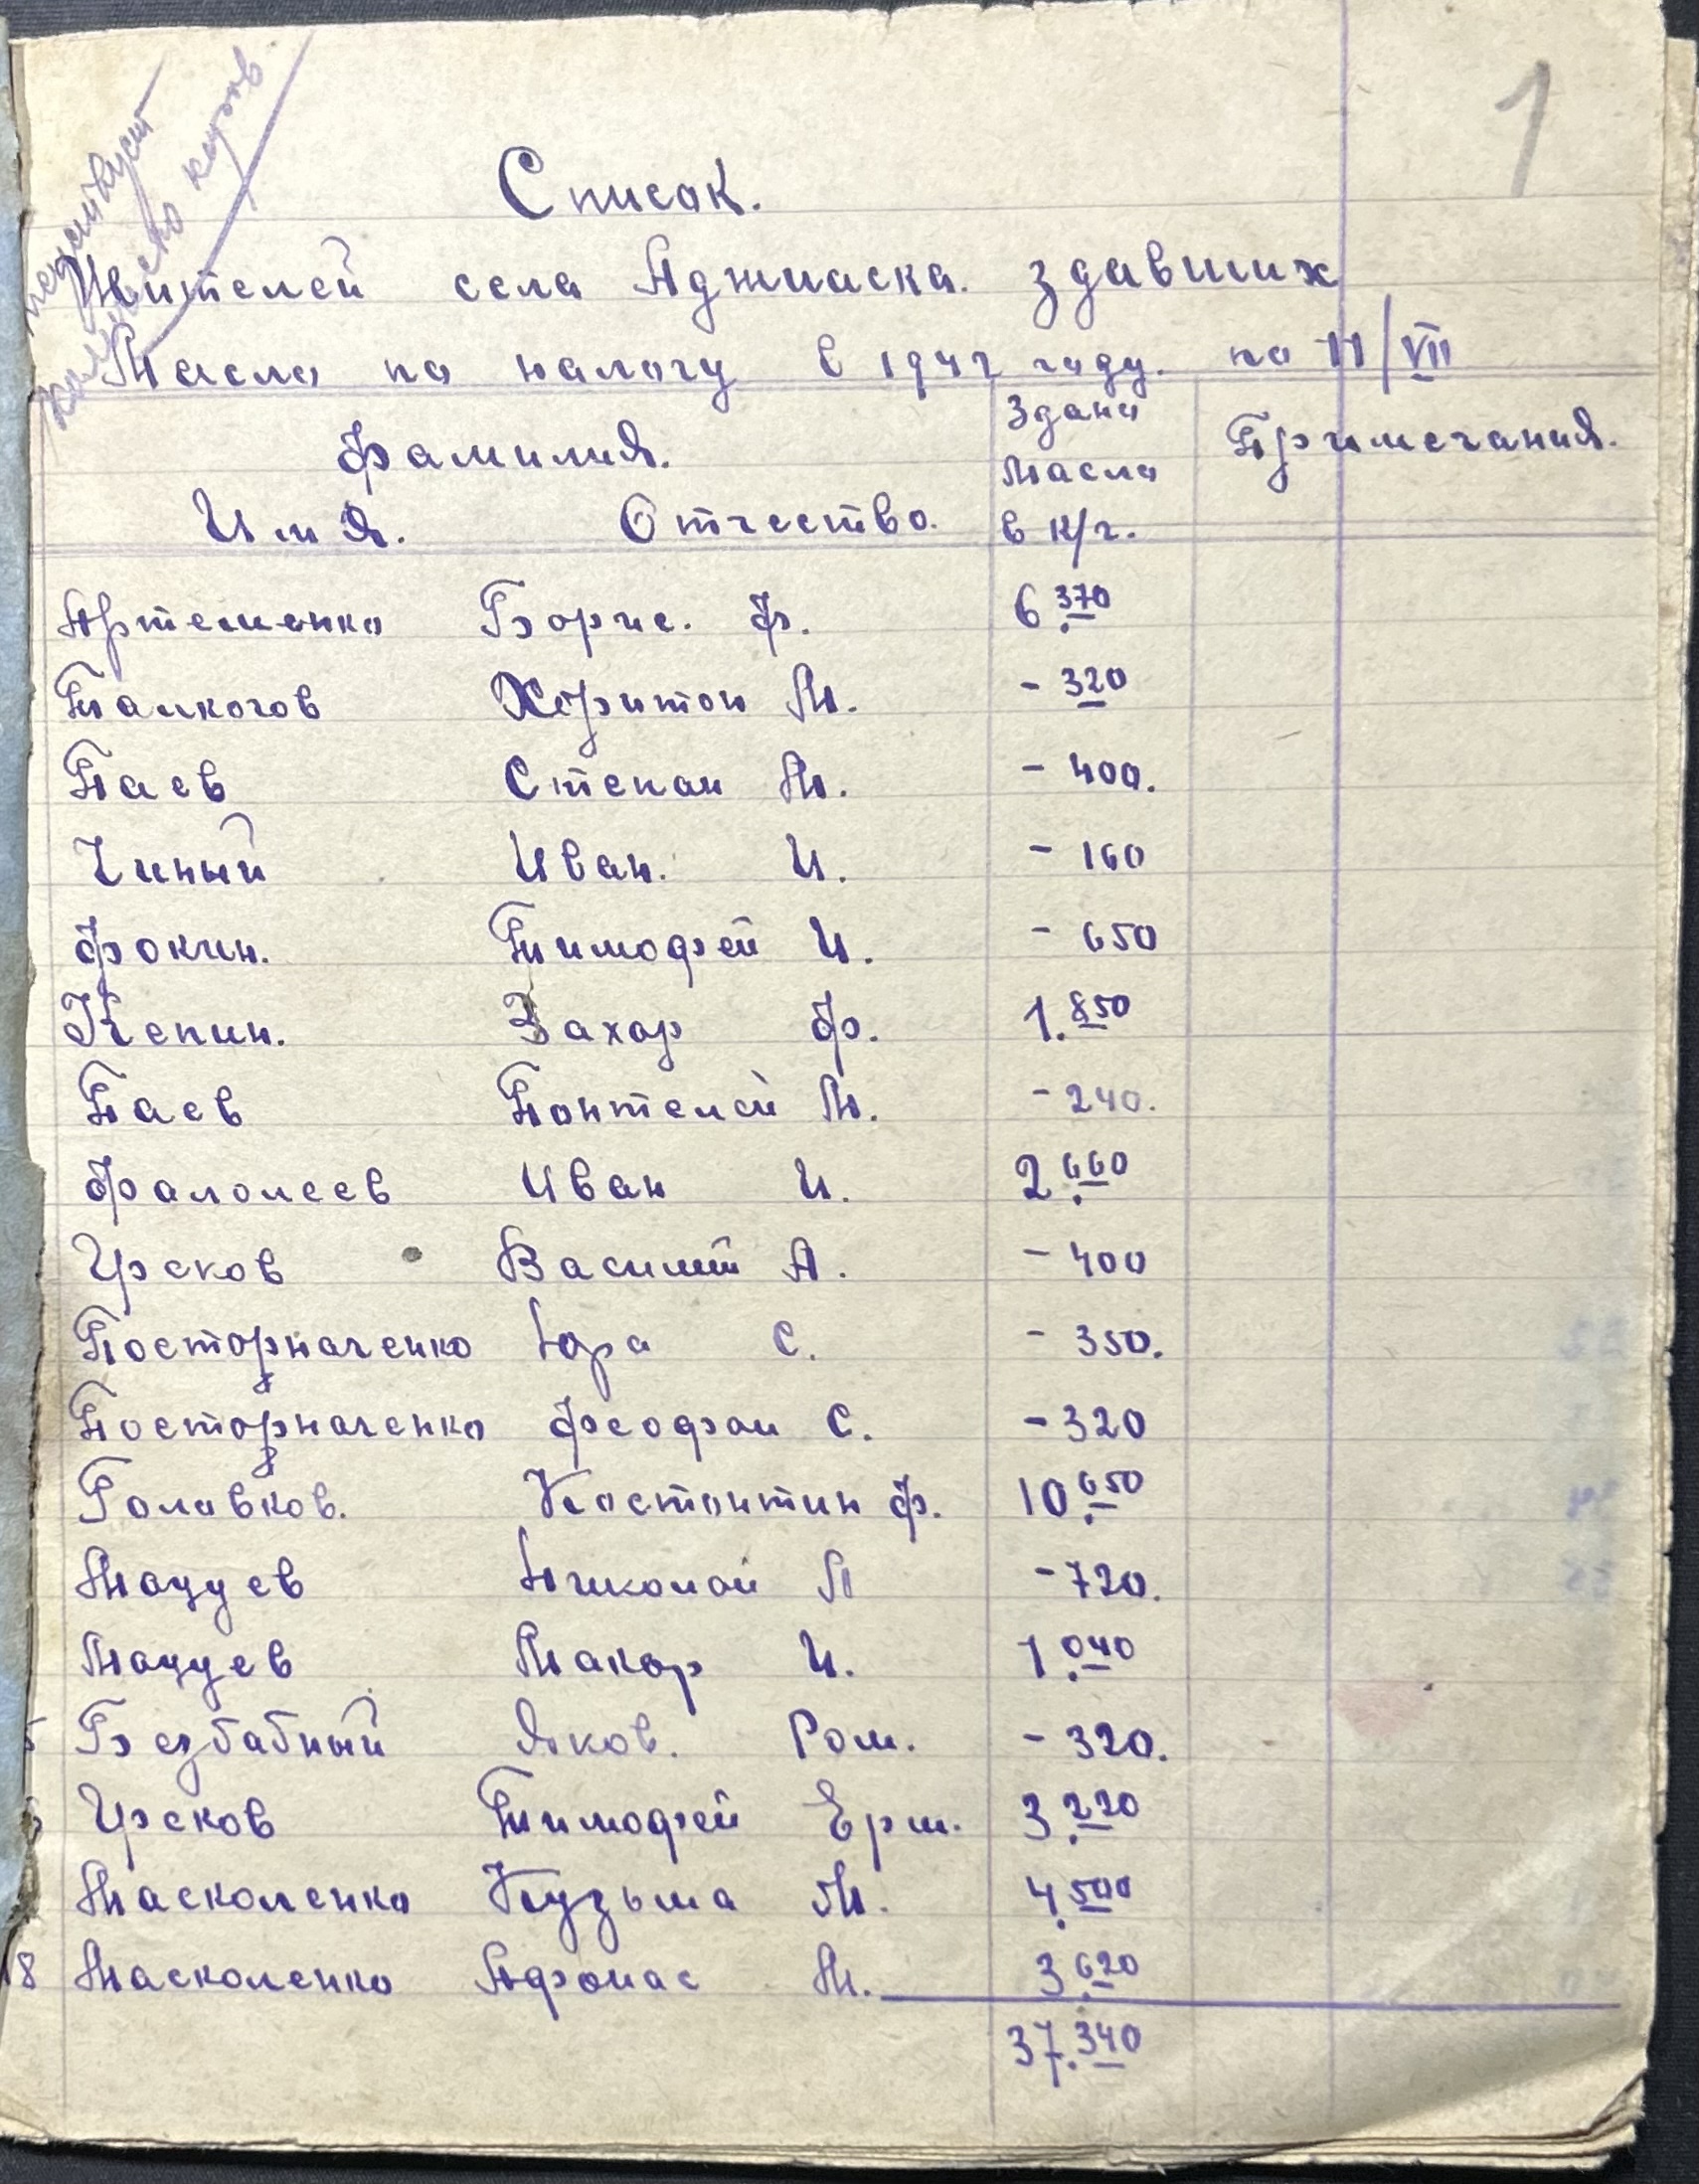 1
Список.
Жителей села Аджиаска. здавших
Масла по налогу в 1942 году. по 11/VII
Фамилия.
Имя. Отчество.
Здано
Масла
в к/г.
Примечания.
Артеменко Борис. Ф. 6.370
Харитон М. - 320
Баев Степан М. - 400.
Иван. И. - 160
Фокин. Тимофей И. - 650
Кепин. Захар Ф. 1.850
Баев Пантелей М. - 240.
Фалолеев Иван И. 2.660
Урсков Василий А. - 400
Посторначенко С. - 350.
Посторначенко Феофан С. - 320
Голавков. Костонтин Ф. 10.650
Мацуев Николай П - 720.
Мацуев Макар И. 1.040
Безбабный Яков. Ром. - 320.
Урсков Тимофей Ерм. 3.220
Масколенко Кузьма М. 4.500
18 Масколенко Афонас М. 3.620
37.340